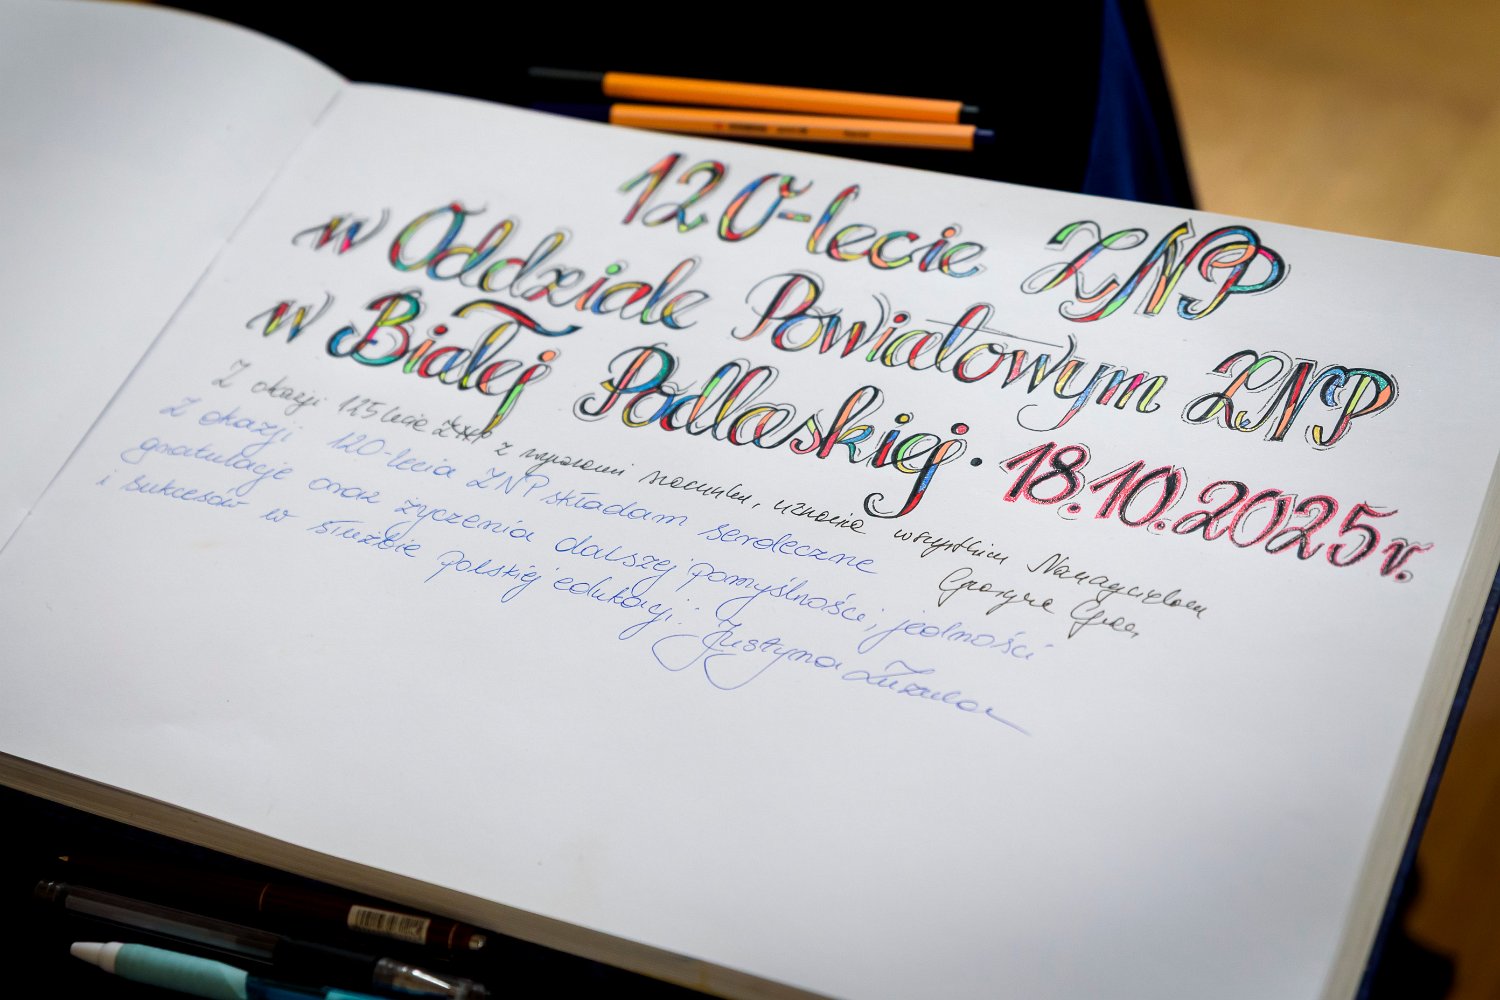 120-lecie ZNP
w Oddziale Powiatowym ZNP
w Białej Podlaskiej. 18.10.2025r.
Z okazji 125 lecie ZNP z wyrazami szacunku, uznania wszystkim Nauczycielom
Grażyna
Z okazji 120-lecia ZNP składam serdeczne
gratulacje oraz życzenia dalszej pomyślności, jedności
i sukcesów w służbie polskiej edukacji. Justyna